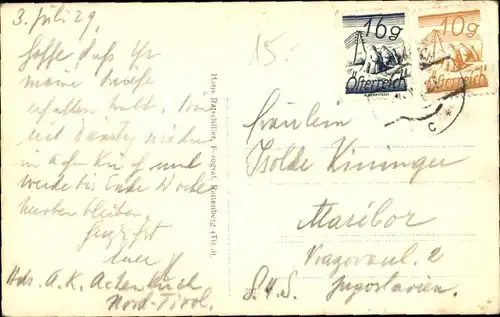 3. Juli 29.
Hoffe daß Ihr
meine Briefe
erhalten habt. Bin
mit
in und
werde bis Ende Woche
bleiben.
Adr. A. K. Achenkirch
Nord-Tirol.
Hans Ratschiller, Fotograf, Rattenberg (Tirol).
15.-
16g
Österreich
10g
Österreich
Fräulein
Isolde Kininger
Maribor
Vragovaul. 2
S.H.S. Jugoslavien.